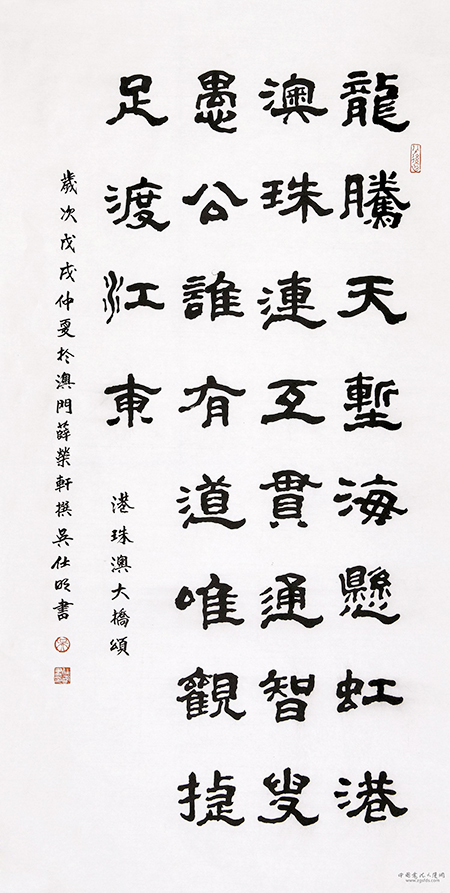 龍騰天塹海懸虹港
澳珠連互貫通智叟
愚公誰有道唯觀捷
足渡江東
港珠澳大橋頌
歲次戊戌仲夏於澳門薛榮軒撰吳仕明書
www.zgshfa.com